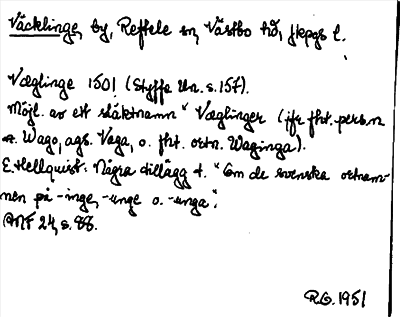 Väcklinge, by, Reftele sn, Västbo hd, Jkpgs l.
Væglinge 1501 (Styffe Un. s. 157).
Möjl. av ett släktnamn "Væglinger (jfr fht. persn
Wago, ags. Vaga, o. fht. ortn. Waginga).
E. Hellquist. Några tillägg t. "Om de svenska ortnam-
nen på -inge, -unge o. -unga".
ANF 24, s. 88.
R.G. 1951